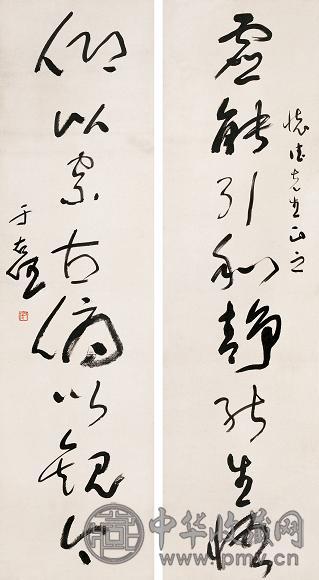 懷德先生正之
虛能引和靜能生悟
仰以察古俯以觀今
于右任
中华收藏网